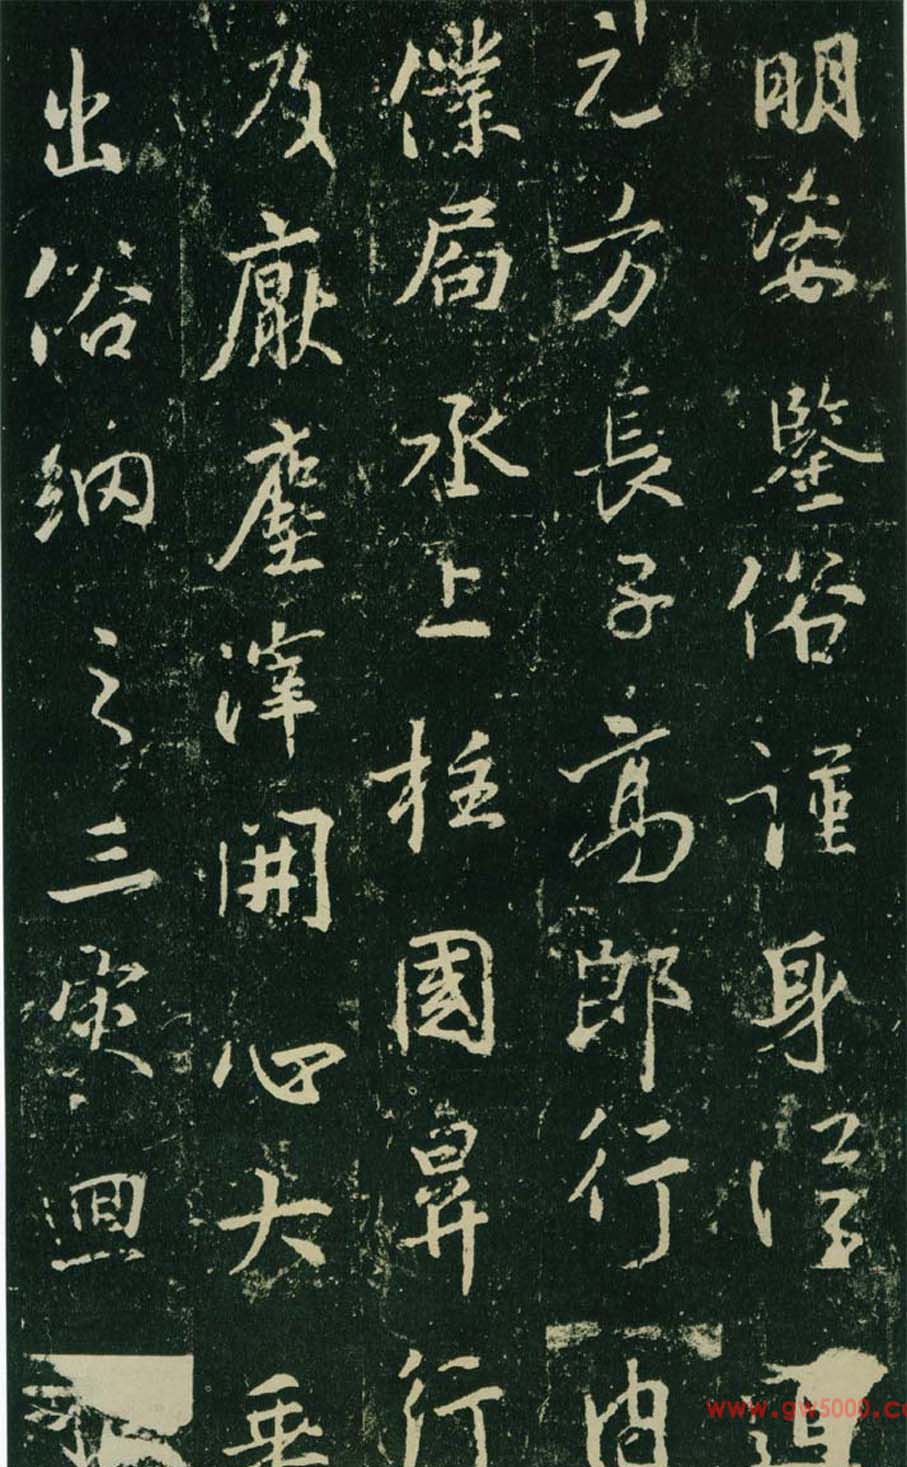 明姿鑒俗謹身
元方長子高郎行内
僕局丞上柱國昇行
及廠塵滓開心大垂
出俗納之三寅迴
www.gw5000.co